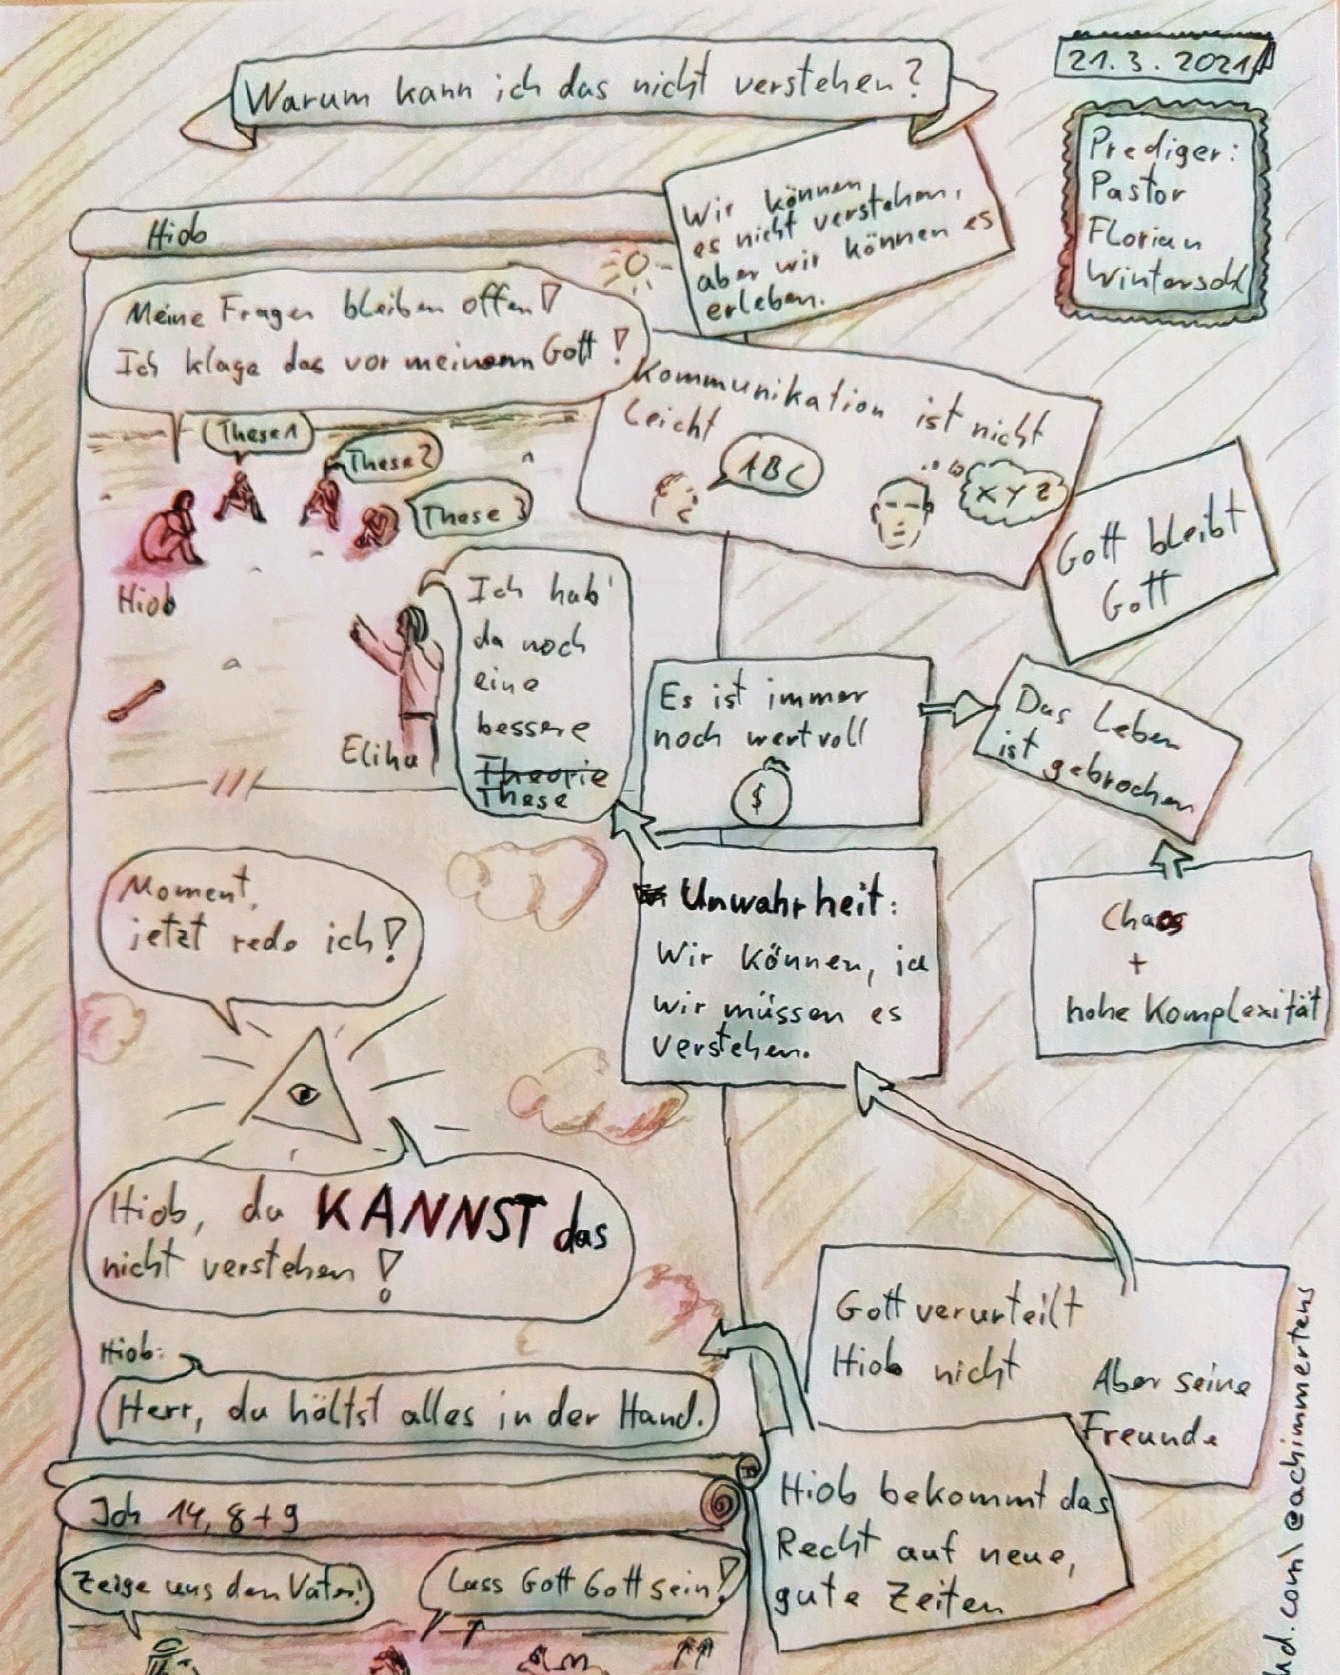 Warum kann ich das nicht verstehen?
21.3.2021
Prediger:
Pastor
Florian
Hiob
Wir können
es nicht verstehen,
aber wir können es
erleben.
Meine Fragen bleiben offen!
Ich klage das vor meinem Gott!
These 1
These 2
These 3
Hiob
Kommunikation ist nicht
leicht
ABC
XYZ
Gott bleibt
Gott
Ich hab'
da noch
eine
bessere
Theorie
These
Elihu
Es ist immer
noch wertvoll
$
Das Leben
ist gebrochen
Moment,
jetzt rede ich!
Unwahrheit:
Wir können, ja
wir müssen es
verstehen.
Chaos
+
hohe Komplexität
Hiob, du KANNST das
nicht verstehen!
Gott verurteilt
Hiob nicht
Aber seine
Freunde
Hiob:
Herr, du hältst alles in der Hand.
Hiob bekommt das
Recht auf neue,
gute Zeiten
Joh 14, 8+9
Zeige uns den Vater!
Lass Gott Gott sein!
d.com\@achimmertens